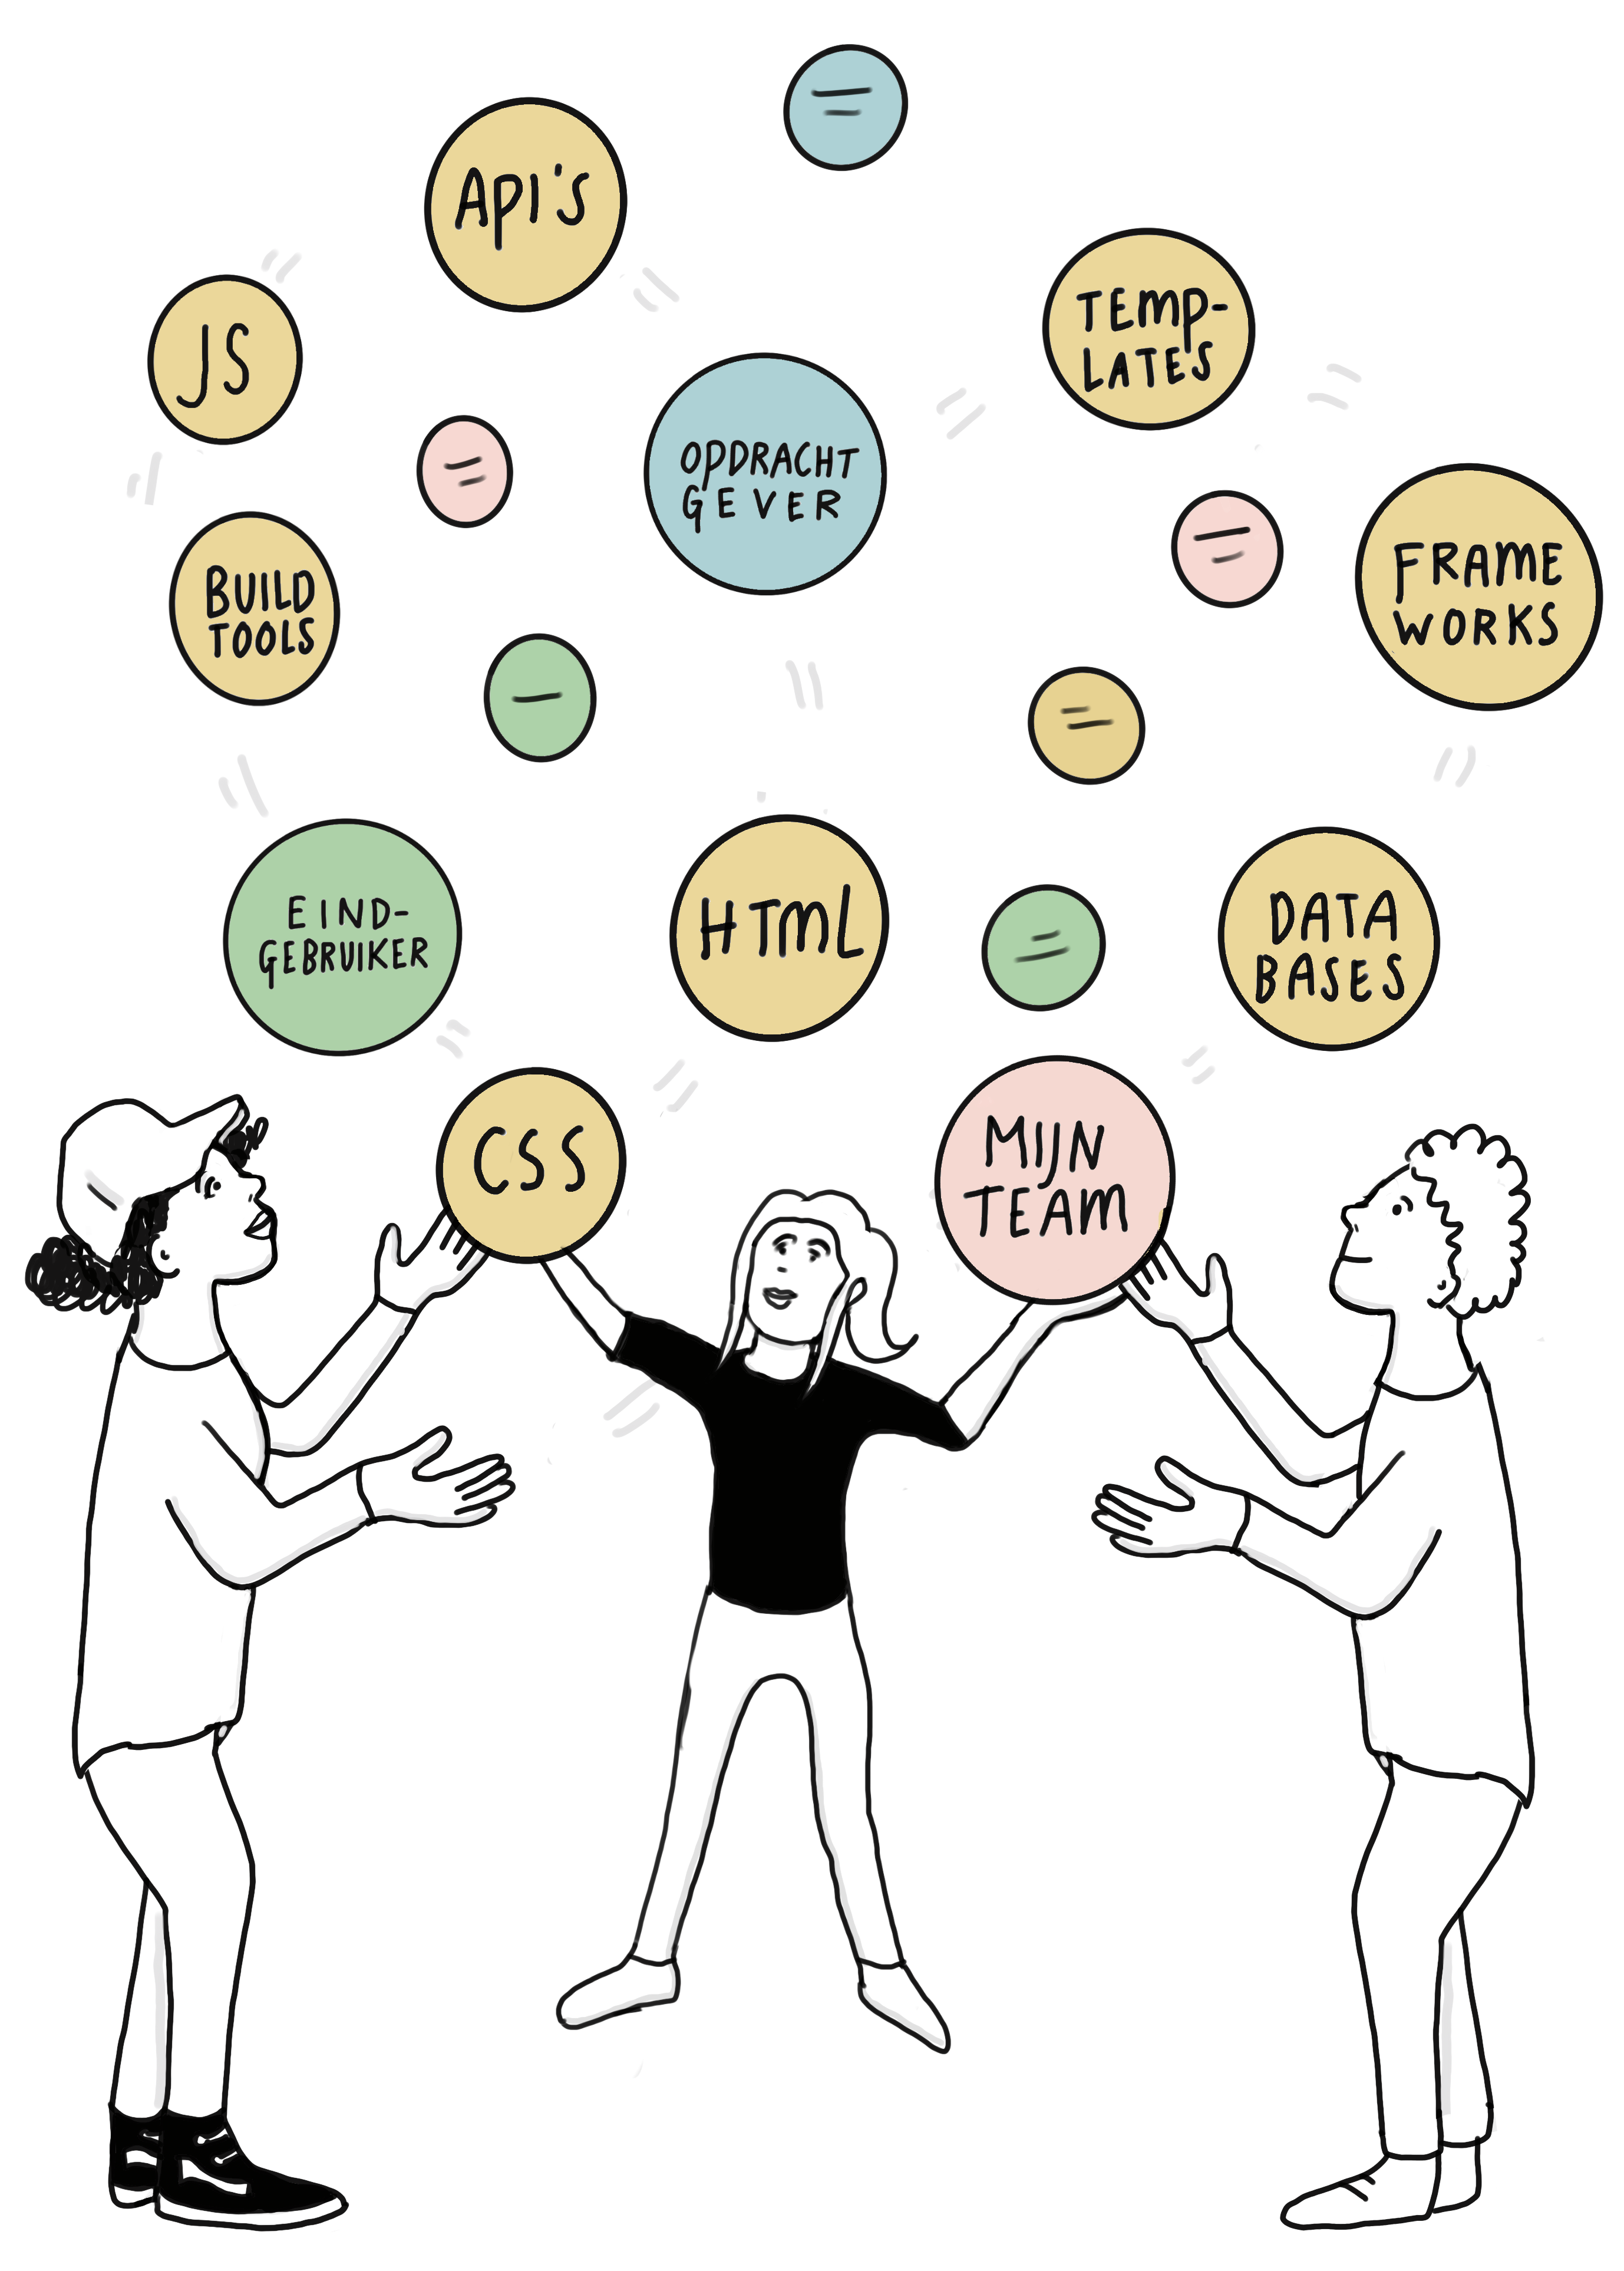 Api's
JS
TEMP-
LATES
OPDRACHT
GEVER
BUILD
TOOLS
FRAME
WORKS
EIND-
GEBRUIKER
HTML
DATA
BASES
CSS
MIJN
TEAM